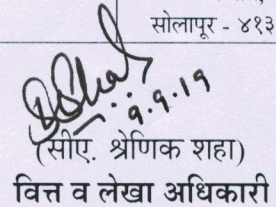 सोलापूर - ४१३
9.9.19
(सीए. श्रेणिक शहा)
वित्त व लेखा अधिकारी